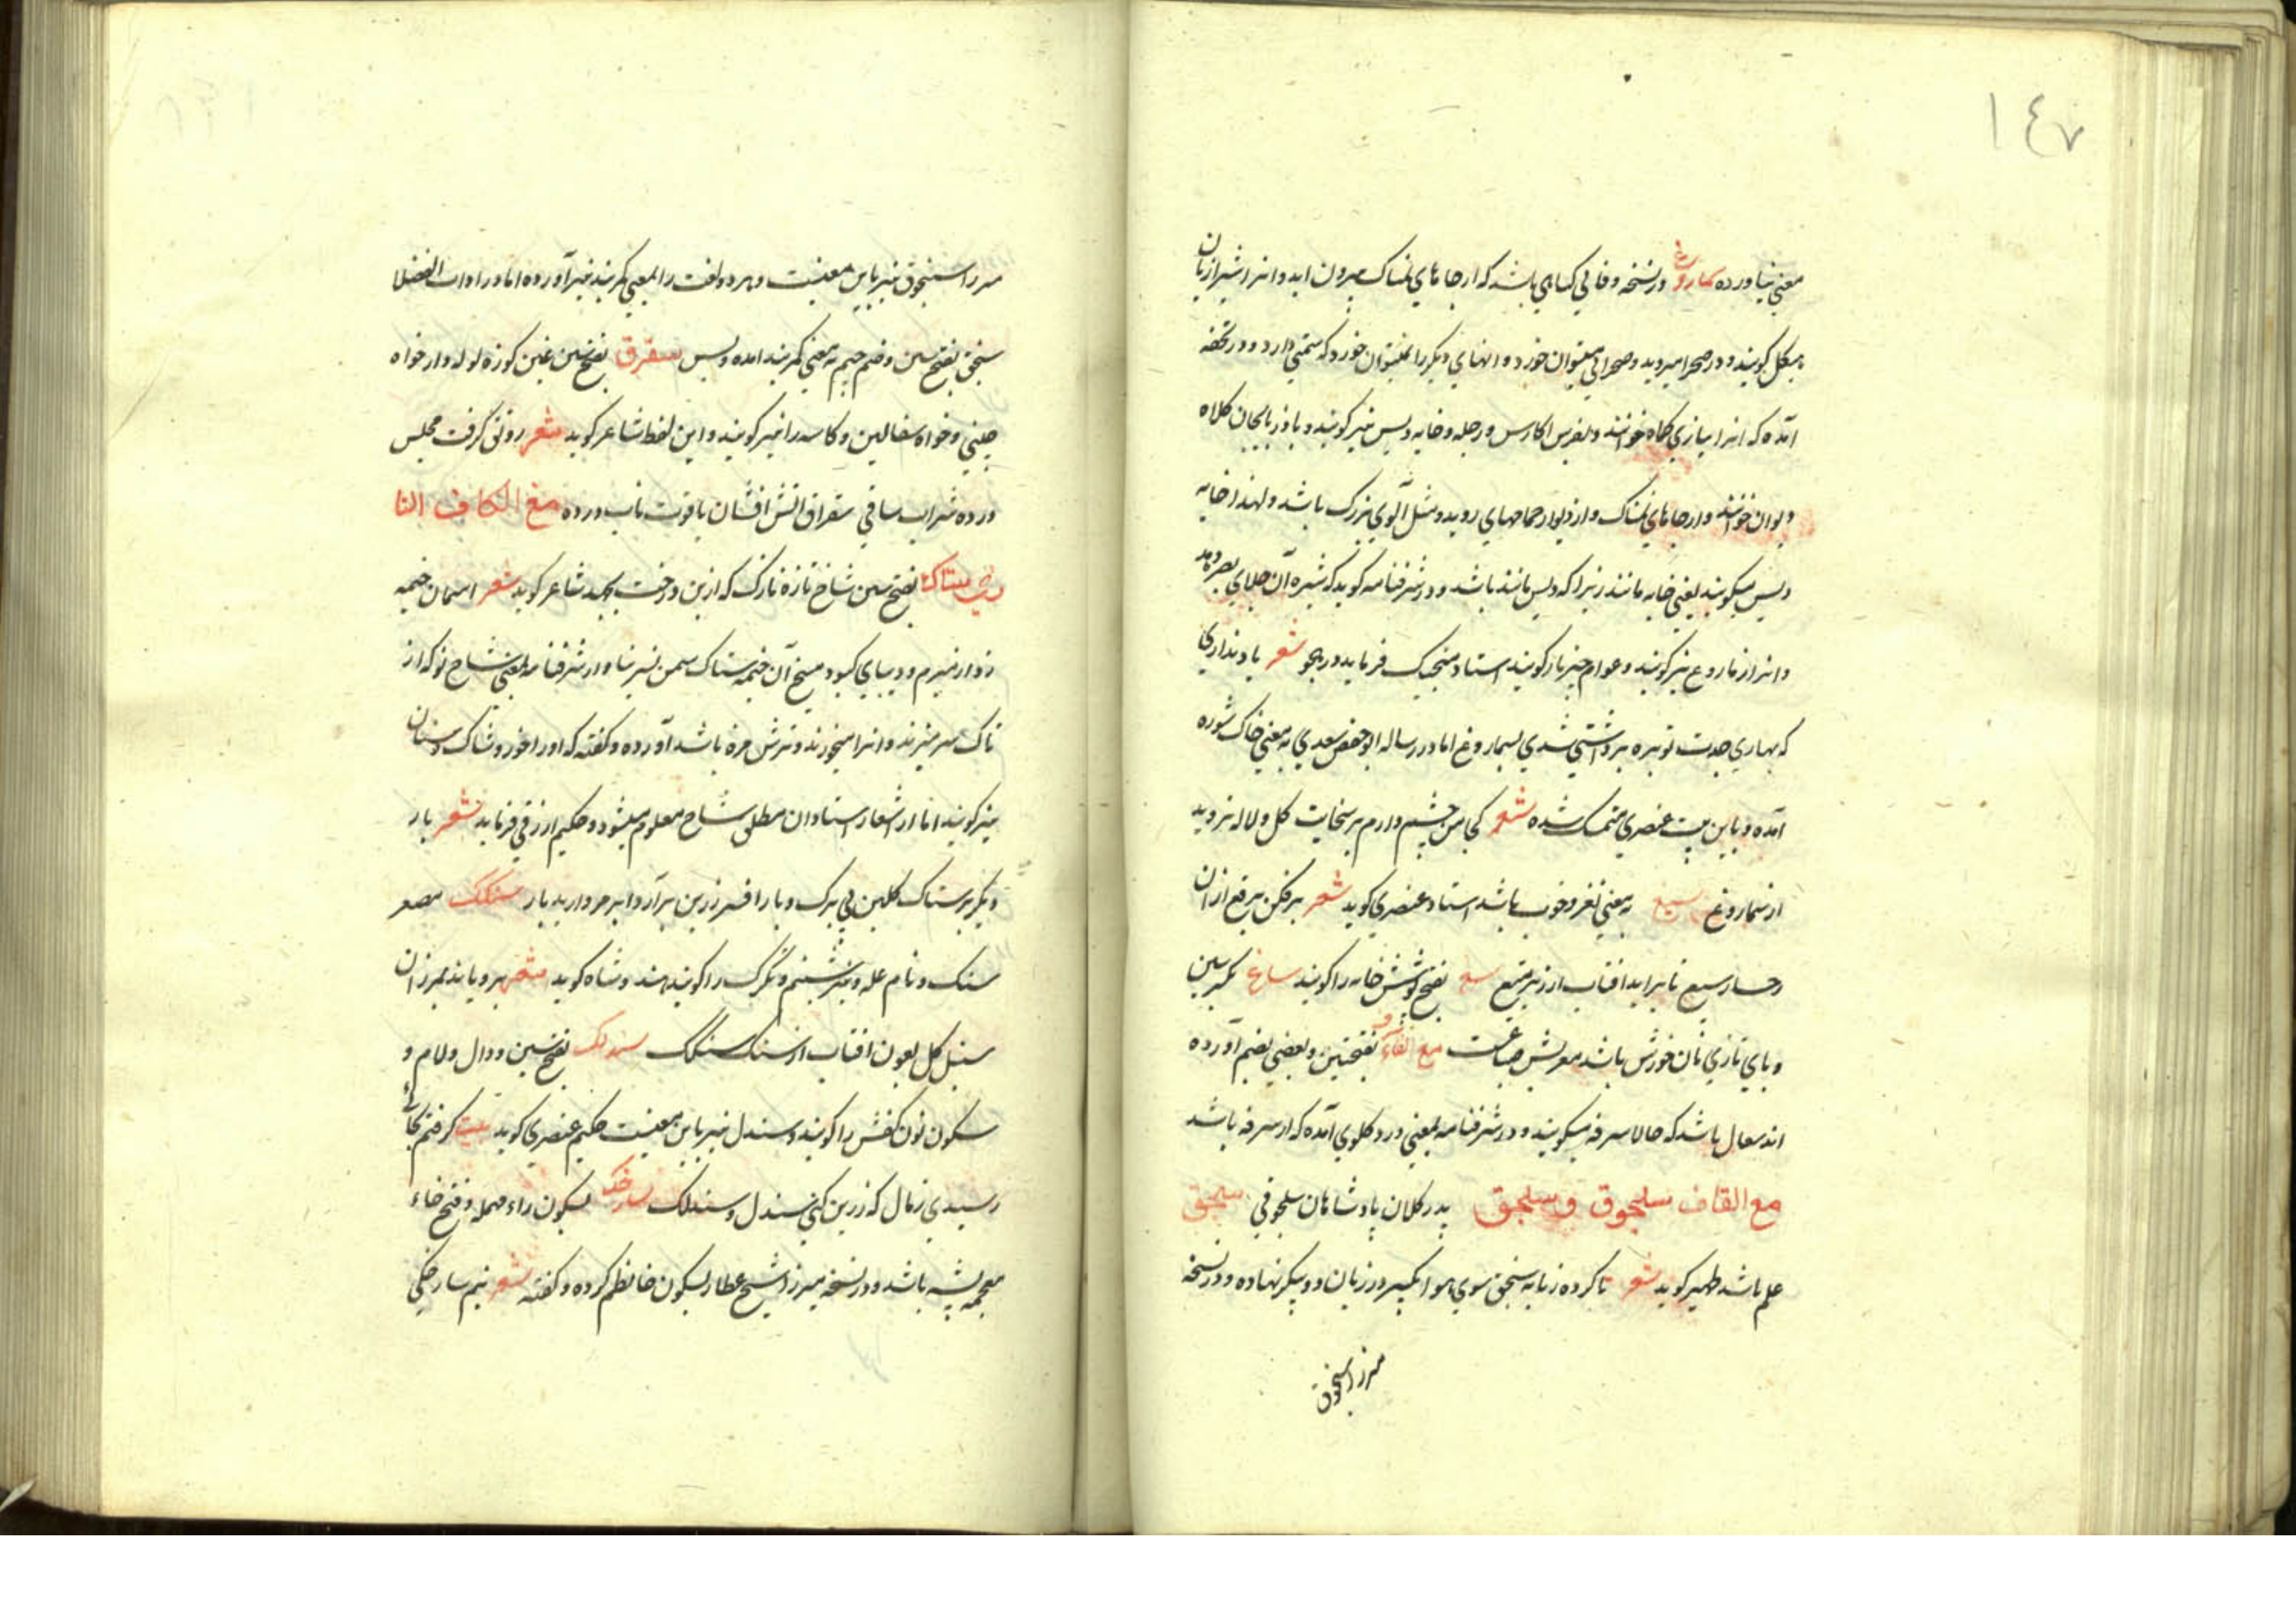 ١٤٧
معنی نیاورده سماروغ در نسخه وفائی گیاهی باشد که از جاهای نمناک بیرون اید و انرا شیرازیان
هیکل گویند و در صحرا میروید و صحرائی میتوان خورد و انهای دیگر را نمیتوان خورد که سمّی دارد و در تحفه
آمده که انرا بتازی کماه خوانند و بفرس اکارس و رجله و خایه دیس نیز گویند و باذربایجان کلاه
دیوان خوانند و از جاهای نمناک و از دیوار حمامهای روید و مثل آلوی بزرک باشد ولهذا خایه
دیس میگویند یعنی خایه مانند زیرا که دیس مانند باشد و در شرفنامه گوید که شیره آن جلای بصر دهد
و انرا زماروغ نیز گویند و عوام چیز مار گویند استاد منجیک فرماید در هجو شعر یاد نداری
که بهاری جدت توبره برداشتی شدی بسماروغ اما در رساله ابو حفص سعدی به معنی خاک شوره
آمده و باین بیت عنصری متمسک شده شعر کجا من چشم دارم بر سخایت کل و لاله نروید
از سماروغ سیغ به معنی نغز و خوب باشد استاد عنصری گوید شعر برفکن برقع ازان
رخسار سیغ تا براید افتاب از زیر میغ سغ بفتح پوشش خانه را گویند ساغ بکسر سین
و بای تازی نان خورش باشد معربش صباغست مع الفاء سرف بفتحتین و بعضی بضم آورده
اند سعال باشد که حالا سرفه میگویند و در شرفنامه بمعنی درد کلوی آمده که از سرفه باشد
مع القاف سلجوق و سلجق پدر کلان پادشاهان سلجوقی سنجق
علم باشد ظهیر گوید شعر تا کرده زبانه سنجق سوی هوا بکیر در زیان دو پیکر نهاده و در نسخه
میرزا سنجوق
میرزا سنجوق نیز باین معنیست و هر دو لغت را بمعنی کمربند نیز آورده اما در ادات الفضلا
سنجق بفتح سین و ضم جیم به معنی کمربند امده و بس سغرق بفتح سین غین کوزه لوله دار خواه
چینی و خواه سفالین و کاسه را نیز گویند و این لغط شاعر گوید شعر رونق گرفت مجلس
درده شراب ساقی سغراق اتش افشان یاقوت ناب درده مع الکاف التا
زی ستاک بفتح سین شاخ تازه نازک که از بن درخت بجهد شاعر گوید شعر اسمان خیمه
زد از بیرم و دیبای کبود میخ آن خیمه ستاک سمن نسرینا و در شرفنامه بمعنی شاخ نو که از
تاک سر میزند و انرا میخورند و ترش مزه باشد آورده و گفته که او را خورد و شاک و ستان
نیز گویند اما از اشعار استادان مطلق شاخ معلوم میشود و حکیم ازرقی فرماید شعر بار
دیگر بر ستاک کلبن بی برک و بار افسر زرین برآرد ابر مروارید بار سنکک مصغر
سنک و نام غله و نیز شبنم و تگرک را گویند هندوشاه گوید شعر برویاند میرزان
سنبل کل بعون افتاب از سنک سنکک سندلک بفتح سین و دال و لام و
سکون نون کفش را گویند و سندل نیز باین معنیست حکیم عنصری گوید بیت کرفتم بجائی
رسیدی زمال که زرین کنی سندل و سندلک سارخک بسکون راء مهمله و فتح خاء
معجمه پشه باشد و در نسخه میرزا شیخ عطار بسکون خا نظم کرده و گفته شعر نیم سارخکی